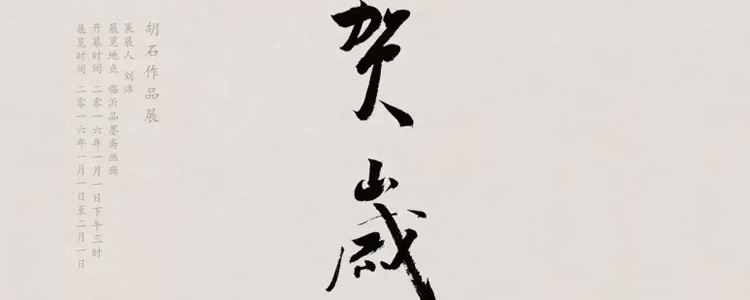 贺歲
胡石作品展
策展人 刘沛
展览地点 临沂品墨斋画廊
开幕时间 二零一六年一月一日下午三时
展览时间 二零一六年一月一日至二月一日